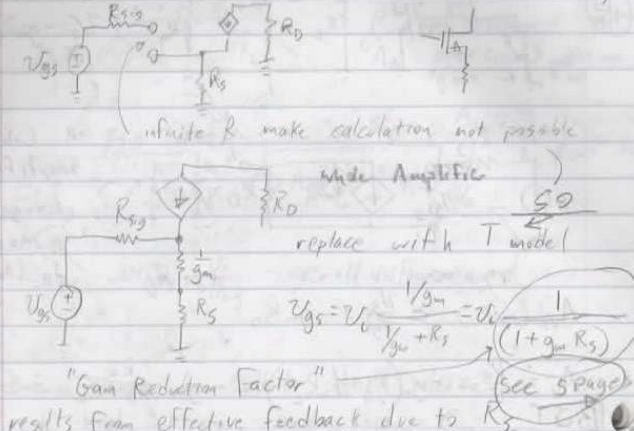 Rsig
RD
Vgs
RS
infinite R make calculation not possible
whole Amplifier
so
RD
Rsig
replace with T model
1/gm
Vgs
RS
vgs = vi (1/gm)/(1/gm + RS) = vi 1/(1 + gm RS)
"Gain Reduction Factor"
see 5 pages
results from effective feedback due to RS